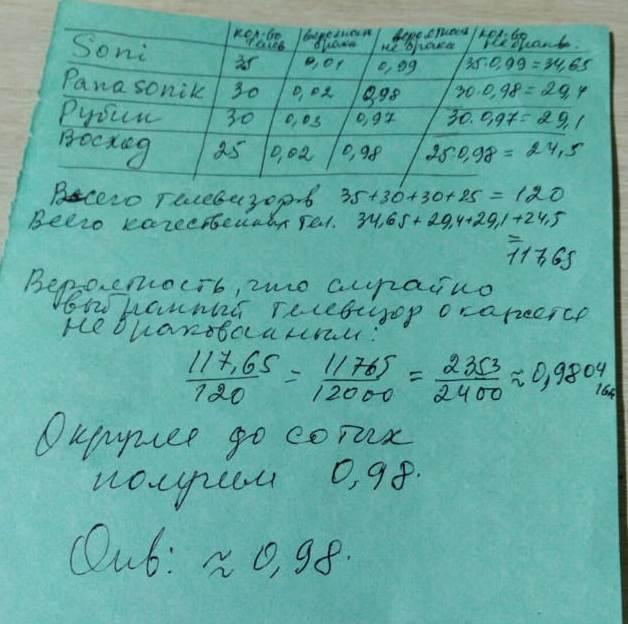 кол-во телев вероятн брака вероятн не брака кол-во не браков.
Soni 35 0,01 0,99 35·0,99=34,65
Panasonik 30 0,02 0,98 30·0,98=29,4
Рубин 30 0,03 0,97 30·0,97=29,1
Восход 25 0,02 0,98 25·0,98=24,5
Всего телевизоров 35+30+30+25=120
Всего качественных тел. 34,65+29,4+29,1+24,5
=
117,65
Вероятность, что случайно
выбранный телевизор окажется
не бракованным:
117,65/120 = 11765/12000 = 2353/2400 ≈ 0,9804
Округляя до сотых
получим 0,98.
Отв: ≈ 0,98.